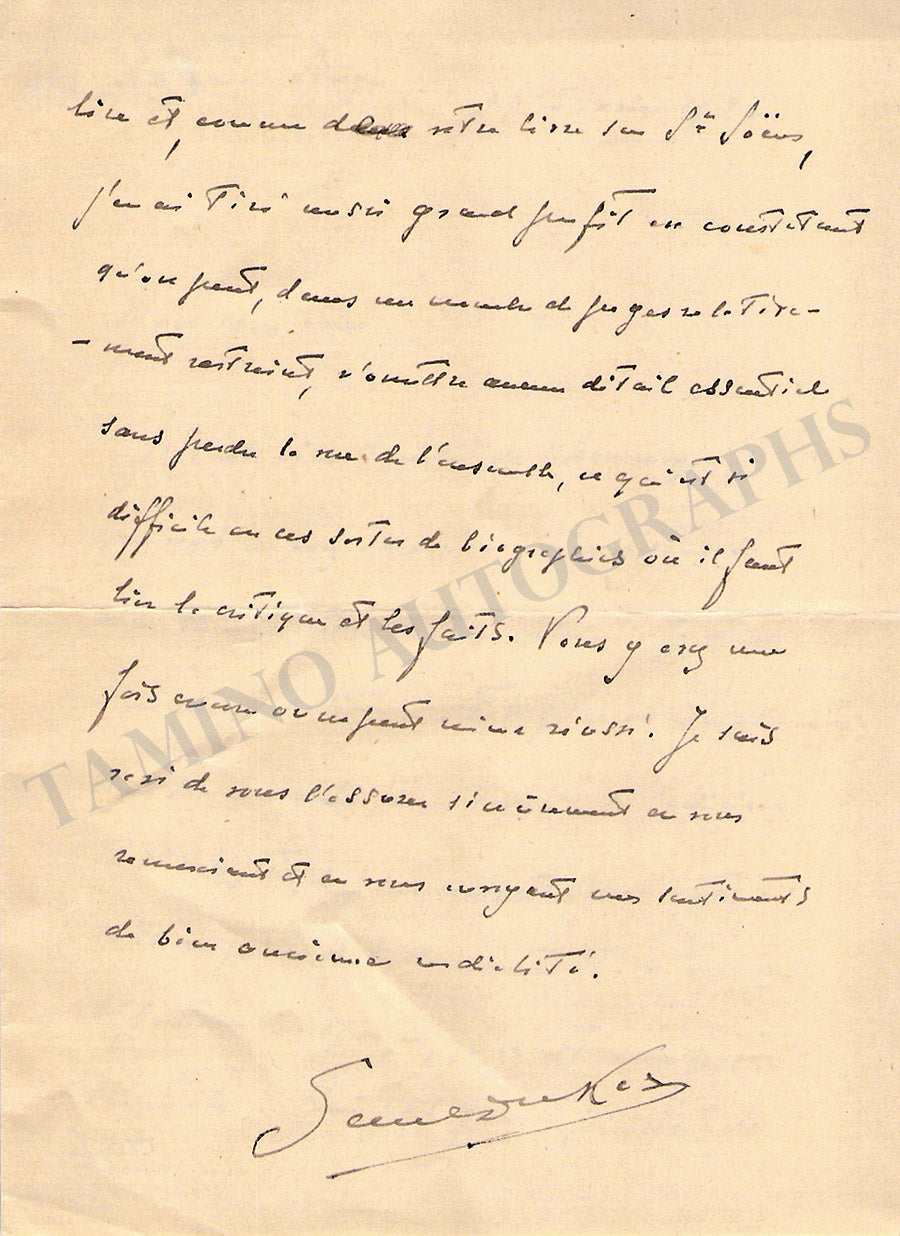 lire et, comme dans votre livre sur St Saëns,
j'en ai tiré aussi grand profit en constatant
qu'on peut, dans un nombre de pages relative-
-ment restreint, n'omettre aucun détail essentiel
sans perdre la vue de l'ensemble, ce qui est si
difficile en ces sortes de biographies où il faut
lier la critique et les faits. Vous y avez une
fois encore on ne peut mieux réussi. Je suis
ravi de vous l'assurer sincèrement en vous
remerciant et en vous envoyant mes sentiments
de bien ancienne cordialité.
Paul Dukas
TAMINO AUTOGRAPHS